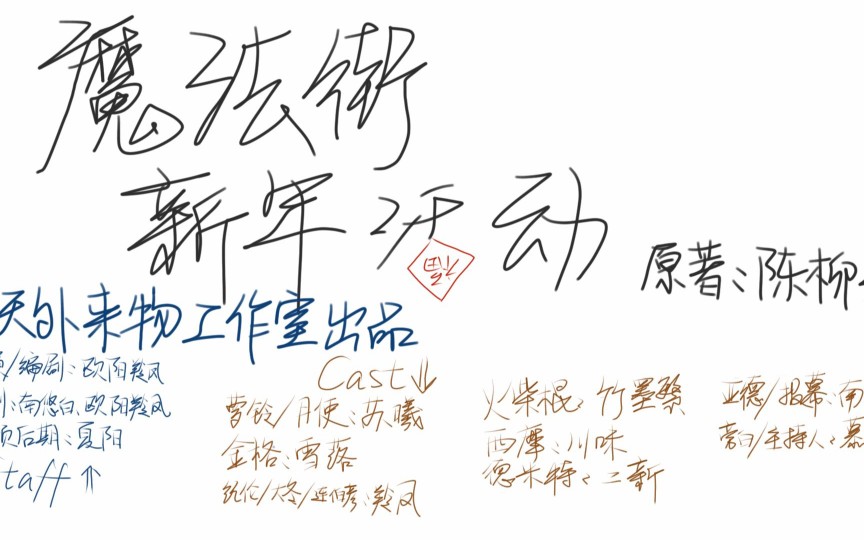 魔法街
新年活动
福
原著：陈柳
天外来物工作室出品
/编剧：欧阳羚风
：南悠白、欧阳羚风
后期：夏阳
Staff↑
Cast↓
/月使：苏曦
金格：雪落
：羚风
火柴棍：竹墨桑
西摩：川味
德米特：二新
亚德/报幕：南
旁白/主持人：慕